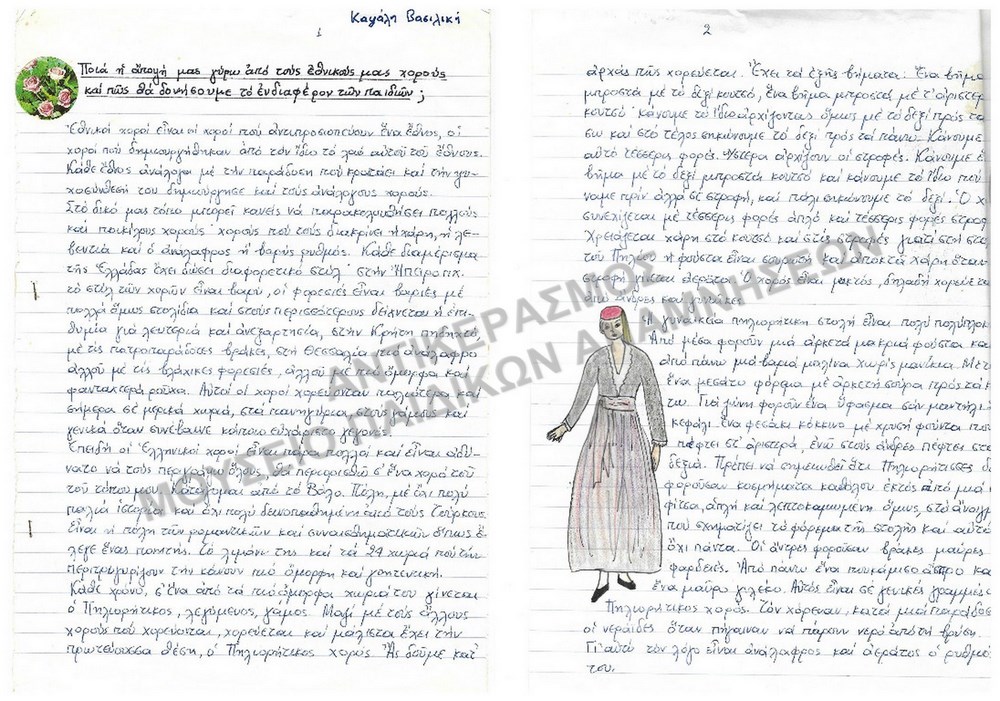 Καψάλη Βασιλική
1
Ποιά ἡ ἄποψή μας γύρω ἀπό τούς ἐθνικούς μας χορούς
καί πῶς θά δονήσουμε τό ἐνδιαφέρον τῶν παιδιῶν;
Ἐθνικοί χοροί εἶναι οἱ χοροί πού ἀντιπροσωπεύουν ἕνα ἔθνος, οἱ
χοροί πού δημιουργήθηκαν ἀπό τόν ἴδιο τό λαό αὐτοῦ τοῦ ἔθνους.
Κάθε ἔθνος ἀνάλογα μέ τήν παράδοση πού κρατάει καί τήν ψυ-
χοσύνθεσή του δημιούργησε καί τούς ἀνάλογους χορούς.
Στό δικό μας τόπο μπορεῖ κανείς νά παρακολουθήσει πολλούς
καί ποικίλους χορούς· χορούς πού τούς διακρίνει ἡ χάρη, ἡ λε-
βεντιά καί ὁ ἀνάλαφρος ἤ βαρύς ρυθμός. Κάθε διαμέρισμα
τῆς Ἑλλάδας ἔχει δώσει διαφορετικό στύλ· στήν Ἤπειρο π.χ.
τό στύλ τῶν χορῶν εἶναι βαρύ, οἱ φορεσιές εἶναι βαριές μέ
πολλά ὅμως στολίδια καί στούς περισσότερους δείχνεται ἡ ἐπι-
θυμία γιά λευτεριά καί ἀνεξαρτησία, στήν Κρήτη πηδηχτό
μέ τίς πατροπαράδοτες βράκες, στή Θεσσαλία πιό ἀνάλαφρο
ἀλλοῦ μέ τίς βλάχικες φορεσιές, ἀλλοῦ μέ πιό ὄμορφα καί
φανταχτερά ροῦχα. Αὐτοί οἱ χοροί χορεύονταν παλιότερα καί
σήμερα σέ μερικά χωριά, στά πανηγύρια, στούς γάμους καί
γενικά ὅταν συνέβαινε κάποιο εὐχάριστο γεγονός.
Ἐπειδή οἱ Ἑλληνικοί χοροί εἶναι πάρα πολλοί καί εἶναι ἀδύ-
νατο νά τούς περιγράψω ὅλους, θά περιορισθῶ σ' ἕνα χορό τοῦ
τοῦ τόπου μου. Κατάγομαι ἀπό τό Βόλο. Πόλη, μέ ὄχι πολύ
παλιά ἱστορία καί ὄχι πολύ δεινοπαθημένη ἀπό τούς Τούρκους.
Εἶναι ἡ πόλη τῶν ρομαντικῶν καί συναισθηματικῶν ὅπως ἔ-
λεγε ἕνας ποιητής. Τό λιμάνι της καί τά 24 χωριά πού τήν
περιτριγυρίζουν τήν κάνουν πιό ὄμορφη καί γοητευτική.
Κάθε χρόνο, σ' ἕνα ἀπό τά πιό ὄμορφα χωριά του γίνεται
ὁ Πηλιορήτικος, λεγόμενος, γάμος. Μαζί μέ τούς ἄλλους
χορούς πού χορεύονται, χορεύεται καί μάλιστα ἔχει τήν
πρωτεύουσα θέση, ὁ Πηλιορήτικος χορός. Ἄς δοῦμε κατ'
2
ἀρχάς πῶς χορεύεται. Ἔχει τά ἑξῆς βήματα: Ἕνα βῆμα
μπροστά μέ τό δεξί κουτσό, ἕνα βῆμα μπροστά μέ τ' ἀριστερ
κουτσό· κάνουμε τό ἴδιο ἀρχίζοντας ὅμως μέ τό δεξί πρός τά
σω καί στό τέλος σηκώνουμε τό δεξί πρός τά πάνω. Κάνουμε
αὐτό τέσσερις φορές. Ὕστερα ἀρχίζουν οἱ στροφές. Κάνουμε ἕ
βῆμα μέ τό δεξί μπροστά κουτσό καί κάνουμε τό ἴδιο πού
ναμε πρίν ἀλλά σέ στροφή, καί πάλι σηκώνουμε τό δεξί. Ὁ χ
συνεχίζεται μέ τέσσερις φορές ἁπλό καί τέσσερις φορές στροφ
Χρειάζεται χάρη στό κουτσό καί στίς στροφές γιατί στή στο
τοῦ Πηλίου ἡ φούστα εἶναι σουρωτή καί ἀποκτᾶ χάρη ὅταν
στροφή γίνεται ἀεράτα. Ὁ χορός εἶναι μικτός, δηλαδή χορεύετα
ἀπό ἄνδρες καί γυναῖκες.
Ἡ γυναικεία πηλιορήτικη στολή εἶναι πολύ πολύπλοκ
Ἀπό μέσα φοροῦν μιά ἀρκετά μακριά φούστα καί
ἀπό πάνω μιά βαριά μάλλινα χωρίς μανίκια. Μέ τ
ἕνα μεσάτο φόρεμα μέ ἀρκετή σούρα πρός τά κ
τω. Γιά ζώνη φοροῦν ἕνα ὕφασμα σάν μαντήλι
κεφάλι ἕνα φεσάκι κόκκινο μέ χρυσή φούντα πού
πέφτει στ' ἀριστερά, ἐνῶ στούς ἄνδρες πέφτει στ
δεξιά. Πρέπει νά σημειωθεῖ ὅτι Πηλιορήτισσες δ
φοροῦσαν κοσμήματα καθόλου ἐκτός ἀπό μιά κ
φίτσα, ἁπλή καί λεπτοκαμωμένη ὅμως, στό ἄνοιγμ
πού σχηματίζει τό φόρεμα τῆς στολῆς καί αὐτό
ὄχι πάντα. Οἱ ἄντρες φοροῦσαν βράκες μαῦρες
φαρδειές. Ἀπό πάνω ἕνα πουκάμισο ἄσπρο καί
ἕνα μαῦρο γιλέκο. Αὐτός εἶναι σέ γενικές γραμμές ὁ
Πηλιορήτικος χορός. Τόν χόρευαν, κατά μιά παράδοσ
οἱ νεράιδες ὅταν πήγαιναν νά πάρουν νερό ἀπό τή βρύση.
Γι' αὐτό τόν λόγο εἶναι ἀνάλαφρος καί ἀεράτος ὁ ρυθμό
του.
ΑΝΤΙΚΕΡΑΣΜΑ
ΜΟΥΣΕΙΟ ΠΑΙΔΙΚΩΝ ΑΝΑΜΝΗΣΕΩΝ